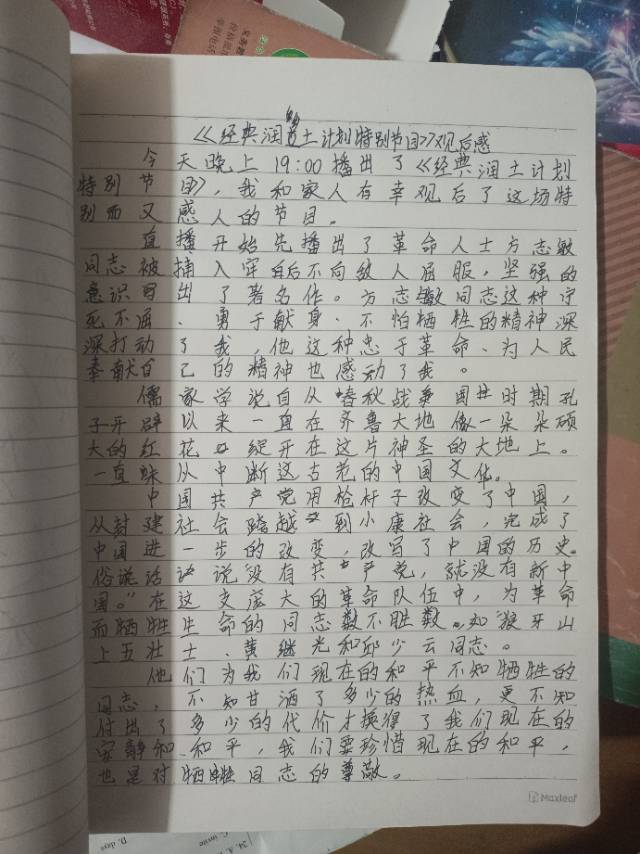 《经典润的土计划特别节目》观后感
今天晚上19:00播出了《经典润土计划
特别节目》，我和家人有幸观后了这场特
别而又感人的节目。
直播开始先播出了革命人士方志敏
同志被捕入牢狱后不向敌人屈服，坚强的
意识写出了著名作。方志敏同志这种宁
死不屈、勇于献身、不怕牺牲的精神深
深打动了我，他这种忠于革命、为人民
奉献自己的精神也感动了我。
儒家学说自从春秋战争国世时期孔
子开辟以来一直在齐鲁大地像一朵朵硕
大的红花绽开在这片神圣的大地上。
一直从中断这古老的中国文化。
中国共产党用枪杆子改变了中国，
从封建社会跨越到小康社会，完成了
中国进一步的改变，改写了中国的历史。
俗说话说“没有共产党，就没有新中
国。”在这支庞大的革命队伍中，为革命
而牺牲生命的同志数不胜数。如“狼牙山
上五壮士、黄继光和邱少云同志。
他们为我们现在的和平不知牺牲的
同志，不知甘洒了多少的热血，更不知
付出了多少的代价才换得了我们现在的
安静和、和平，我们要珍惜现在的和平，
也是对牺牲同志的尊敬。
Maxleaf